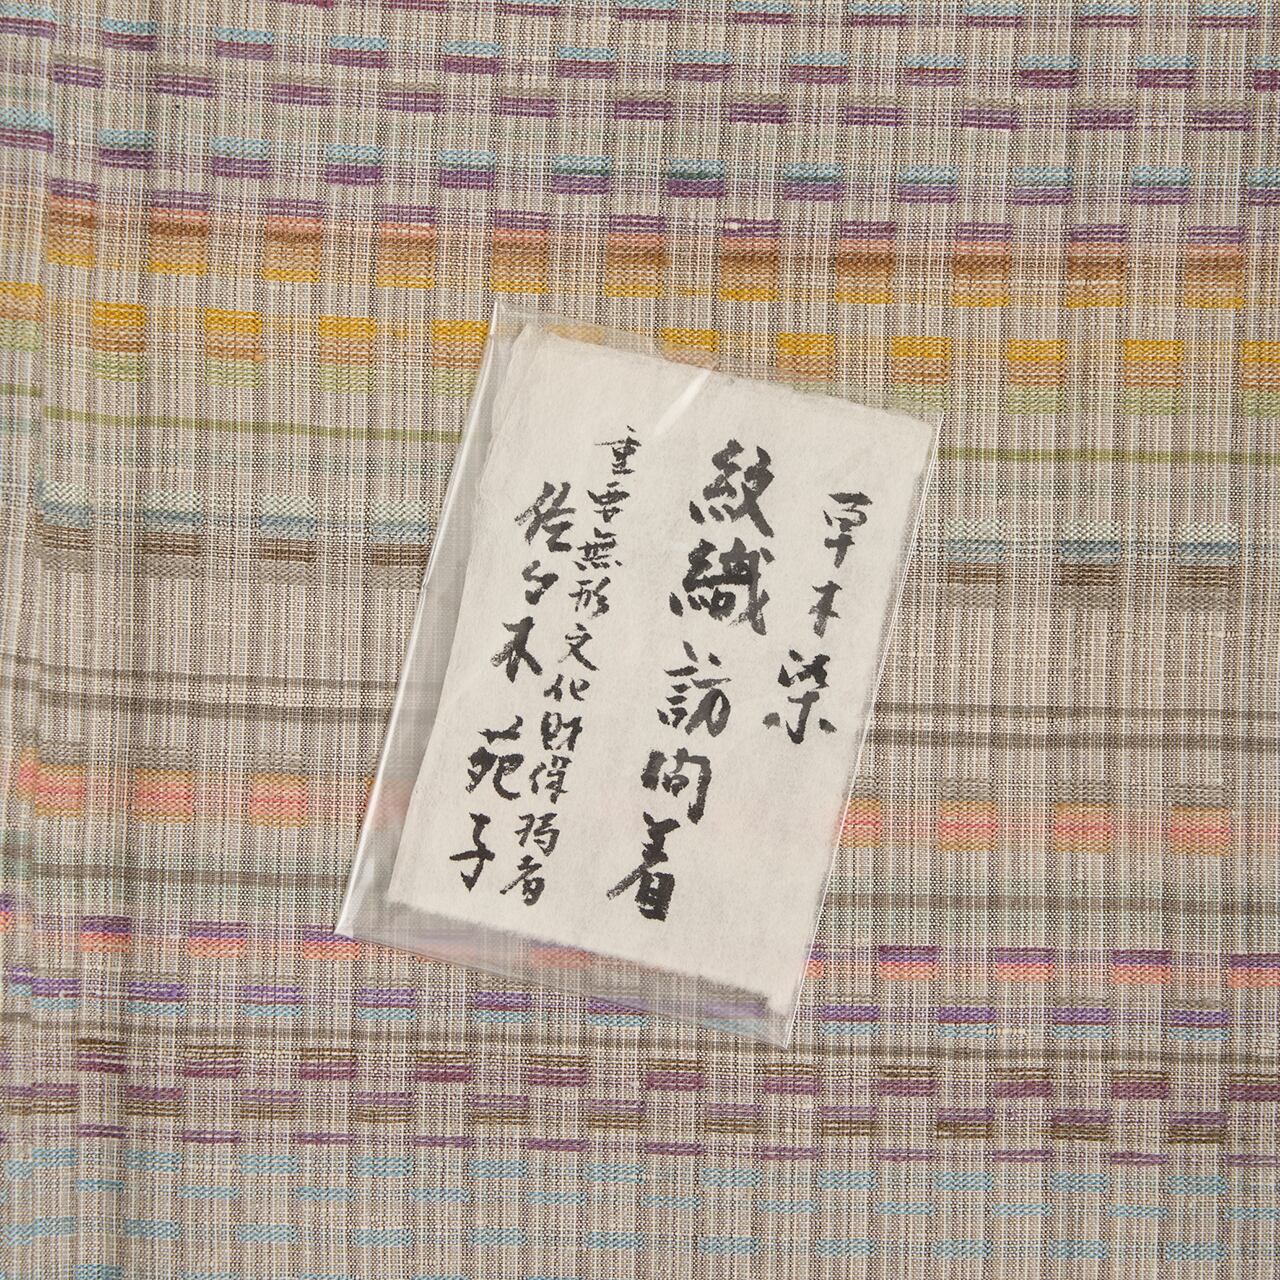 草木染
紋織訪問着
重要無形文化財保持者
佐々木苑子